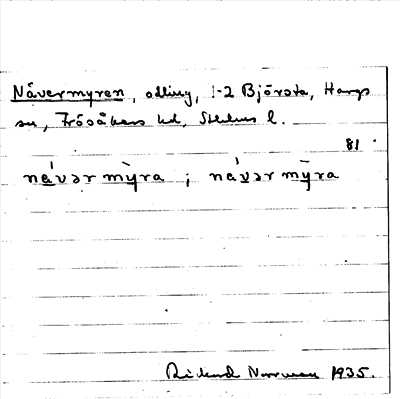 Nävermyren, odling, 1-2 Björsta, Hargs
sn, Frösåkers hd, Sthlms l.
81
návər my̆ra ; návər mȳra
Rickard Norrman 1935.